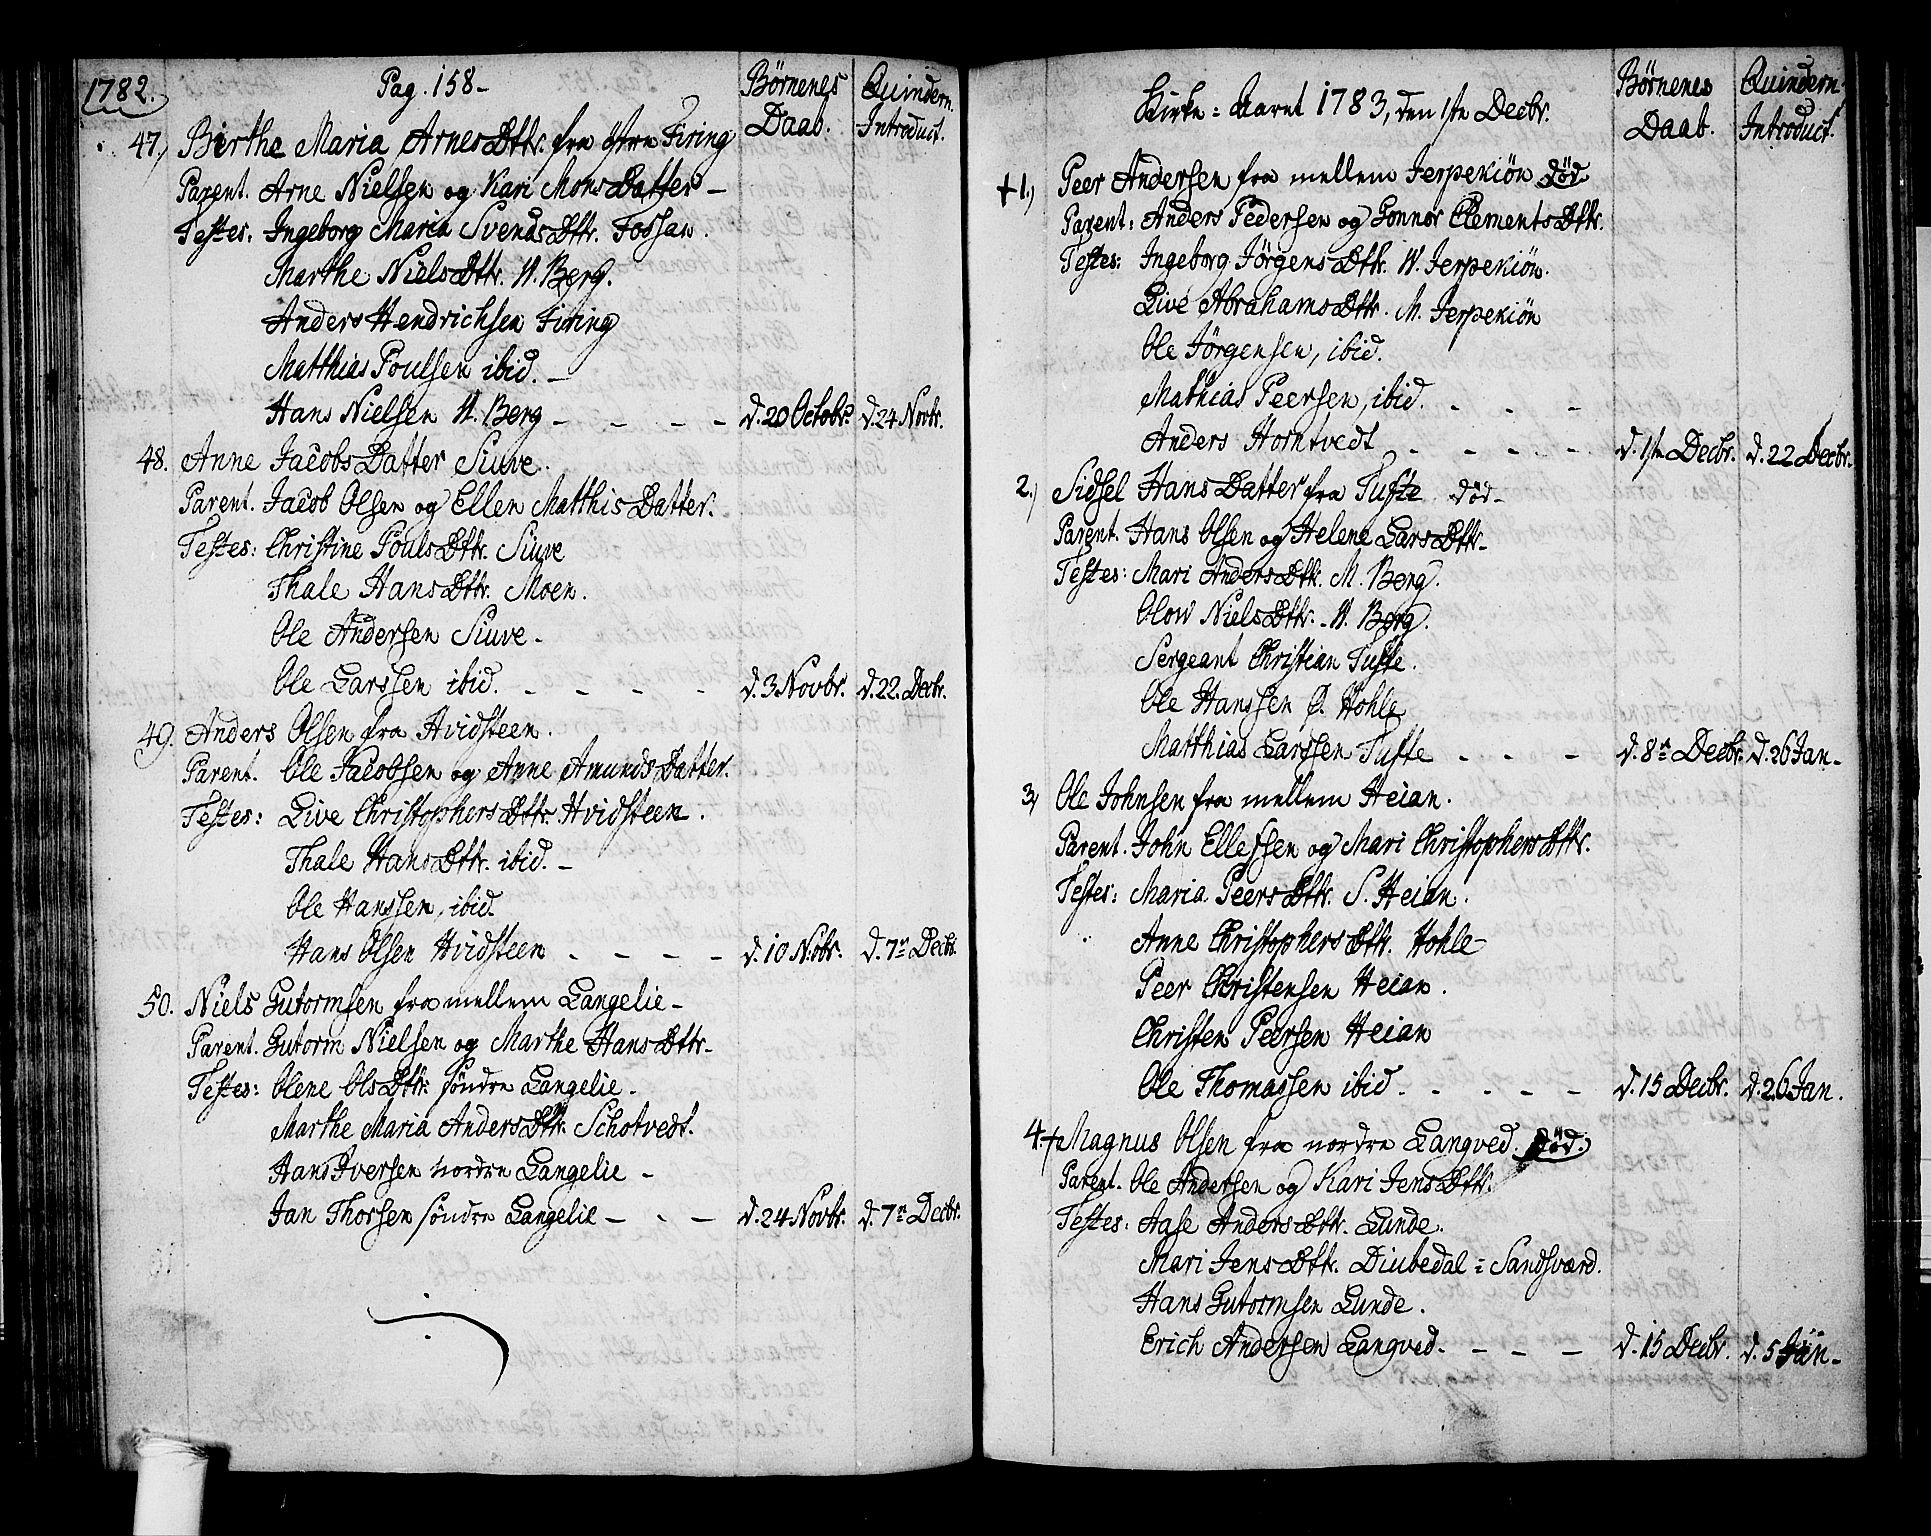 1782.
Pag. 158-
Børnenes Daab.
Quindern. Introduct.
47.) Birthe Maria ArnesDttr. fra østre Firing
Parent. Arne Nielsen og Kari MonsDatter -
Testes: Ingeborg Maria SvendsDttr. Fossan.
Marthe NielsDttr. N. Berg.
Anders Hendrichsen Firing
Matthias Poulsen ibid. -
Hans Nielsen N. Berg - - - - d. 20 Octobr. d. 24 Novbr.
48. Anne JacobsDatter Siuve.
Parent. Jacob Olsen og Ellen MatthisDatter.
Testes: Christine PoulsDttr. Siuve
Thale HansDttr. Moen.
Ole Andersen Siuve -
Ole Larssen ibid. - - - - d. 3 Novbr. d. 22. Decbr.
49. Anders Olsen fra Hvidsteen.
Parent. Ole Jacobsen og Anne AmundsDatter.
Testes: Live ChristophersDttr. Hvidsteen.
Thale HansDttr. ibid. -
Ole Hanssen, ibid.
Hans Olsen Hvidsteen - - - - d. 10 Nobr. d. 7n Decbr.
50. Niels Gutormsen fra mellem Langelie -
Parent. Gutorm Nielsen og Marthe HansDttr -
Testes: Olene OlsDttr. søndre Langelie -
Marthe Maria AndersDttr. Schotvedt.
Hans Iversen nordre Langelie -
Jan Thorsen søndre Langelie - - - d. 24 Novbr. d. 7n Decbr.
Kirke: Aaret 1783, den 1ste Decbr.
Børnenes Daab.
Quindern. Introduct.
+1.) Peer Andersen fra mellem Jerpekiön død
Parent: Anders Pedersen og Gonnor ClementsDttr.
Testes: Ingeborg JörgensDttr. N. Jerpekiön.
Live AbrahamsDttr. M. Jerpekiön
Ole Jörgensen, ibid.
Mathias Peersen, ibid. - - -
Anders Horntvedt - - - - d. 1ste Decbr. d. 22 Decbr.
2.) Sidsel HansDatter fra Tufte død -
Parent. Hans Olsen og Helene LarsDttr -
Testes: Mari AndersDttr. M. Berg.
Olow NielsDttr. - N. Berg.
Sergeant Christian Tufte.
Ole Hanssen Ø. Hohle
Matthias Larssen Tufte - - - d. 8n Decbr. d. 26 Jan -
3) Ole Johnsen fra mellem Heian.
Parent. John Ellefsen og Mari ChristophersDttr.
Testes: Maria PeersDttr. S. Heian.
Anne ChristophersDttr. Hohle -
Peer Christensen Heian.
Christen Peersen Heian
Ole Thomassen ibid - - - - - d. 15 Decbr. d. 26 Jan.
4.+ Magnus Olsen fra nordre Langved. død.
Parent. Ole Andersen og Kari JensDttr.
Testes: Aase AndersDttr. Lunde.
Mari JensDttr. Diubedal i Sandsværd.
Hans Gutormsen Lunde.
Erich Andersen Langved - - - - d. 15 Decbr. d. 5 Jan -